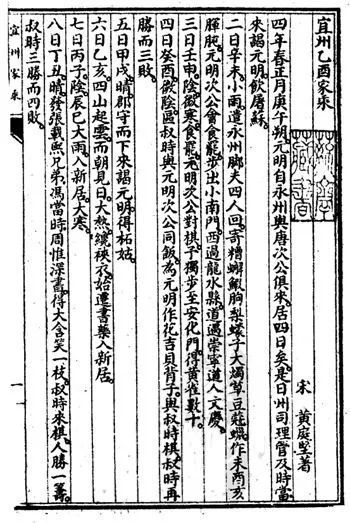 宜州乙酉家乘
宋 黃庭堅著
四年春正月庚午朔。元明自永州與唐次公俱來。居四日矣。是日州司理管及時當
來謁。元明飲屠蘇。
二日辛未。小雨。遣永州腳夫四人回。寄糟蟹鰕胸梨蠔子大燭草豆蔻。蠟作朱酉亥
肫。元明次公會食罷。步出小南門。西過龍水縣。道遇崇寧道人文慶。
三日壬申。陰微寒。食罷。元明次公對棋。予獨步至安化門。得黃雀數十。
四日癸酉。微陰。區叔時與元明次公同飯。為元明作花吉貝背子。與叔時棋。叔時再
勝而三敗。
五日甲戌。晴。郡守而下來謁元明。得柘姑。
六日乙亥。四山起雲而朝見日。大熱。纔袂衣。始遷書藥入新居。
七日丙子。陰。辰巳大雨。入新居。大寒。
八日丁丑。晴。發張載熙兄弟馮當時周惟深書。得大含笑一枝。叔時來棋。人勝一籌。
叔時三勝而四敗。
宜州家乘
一